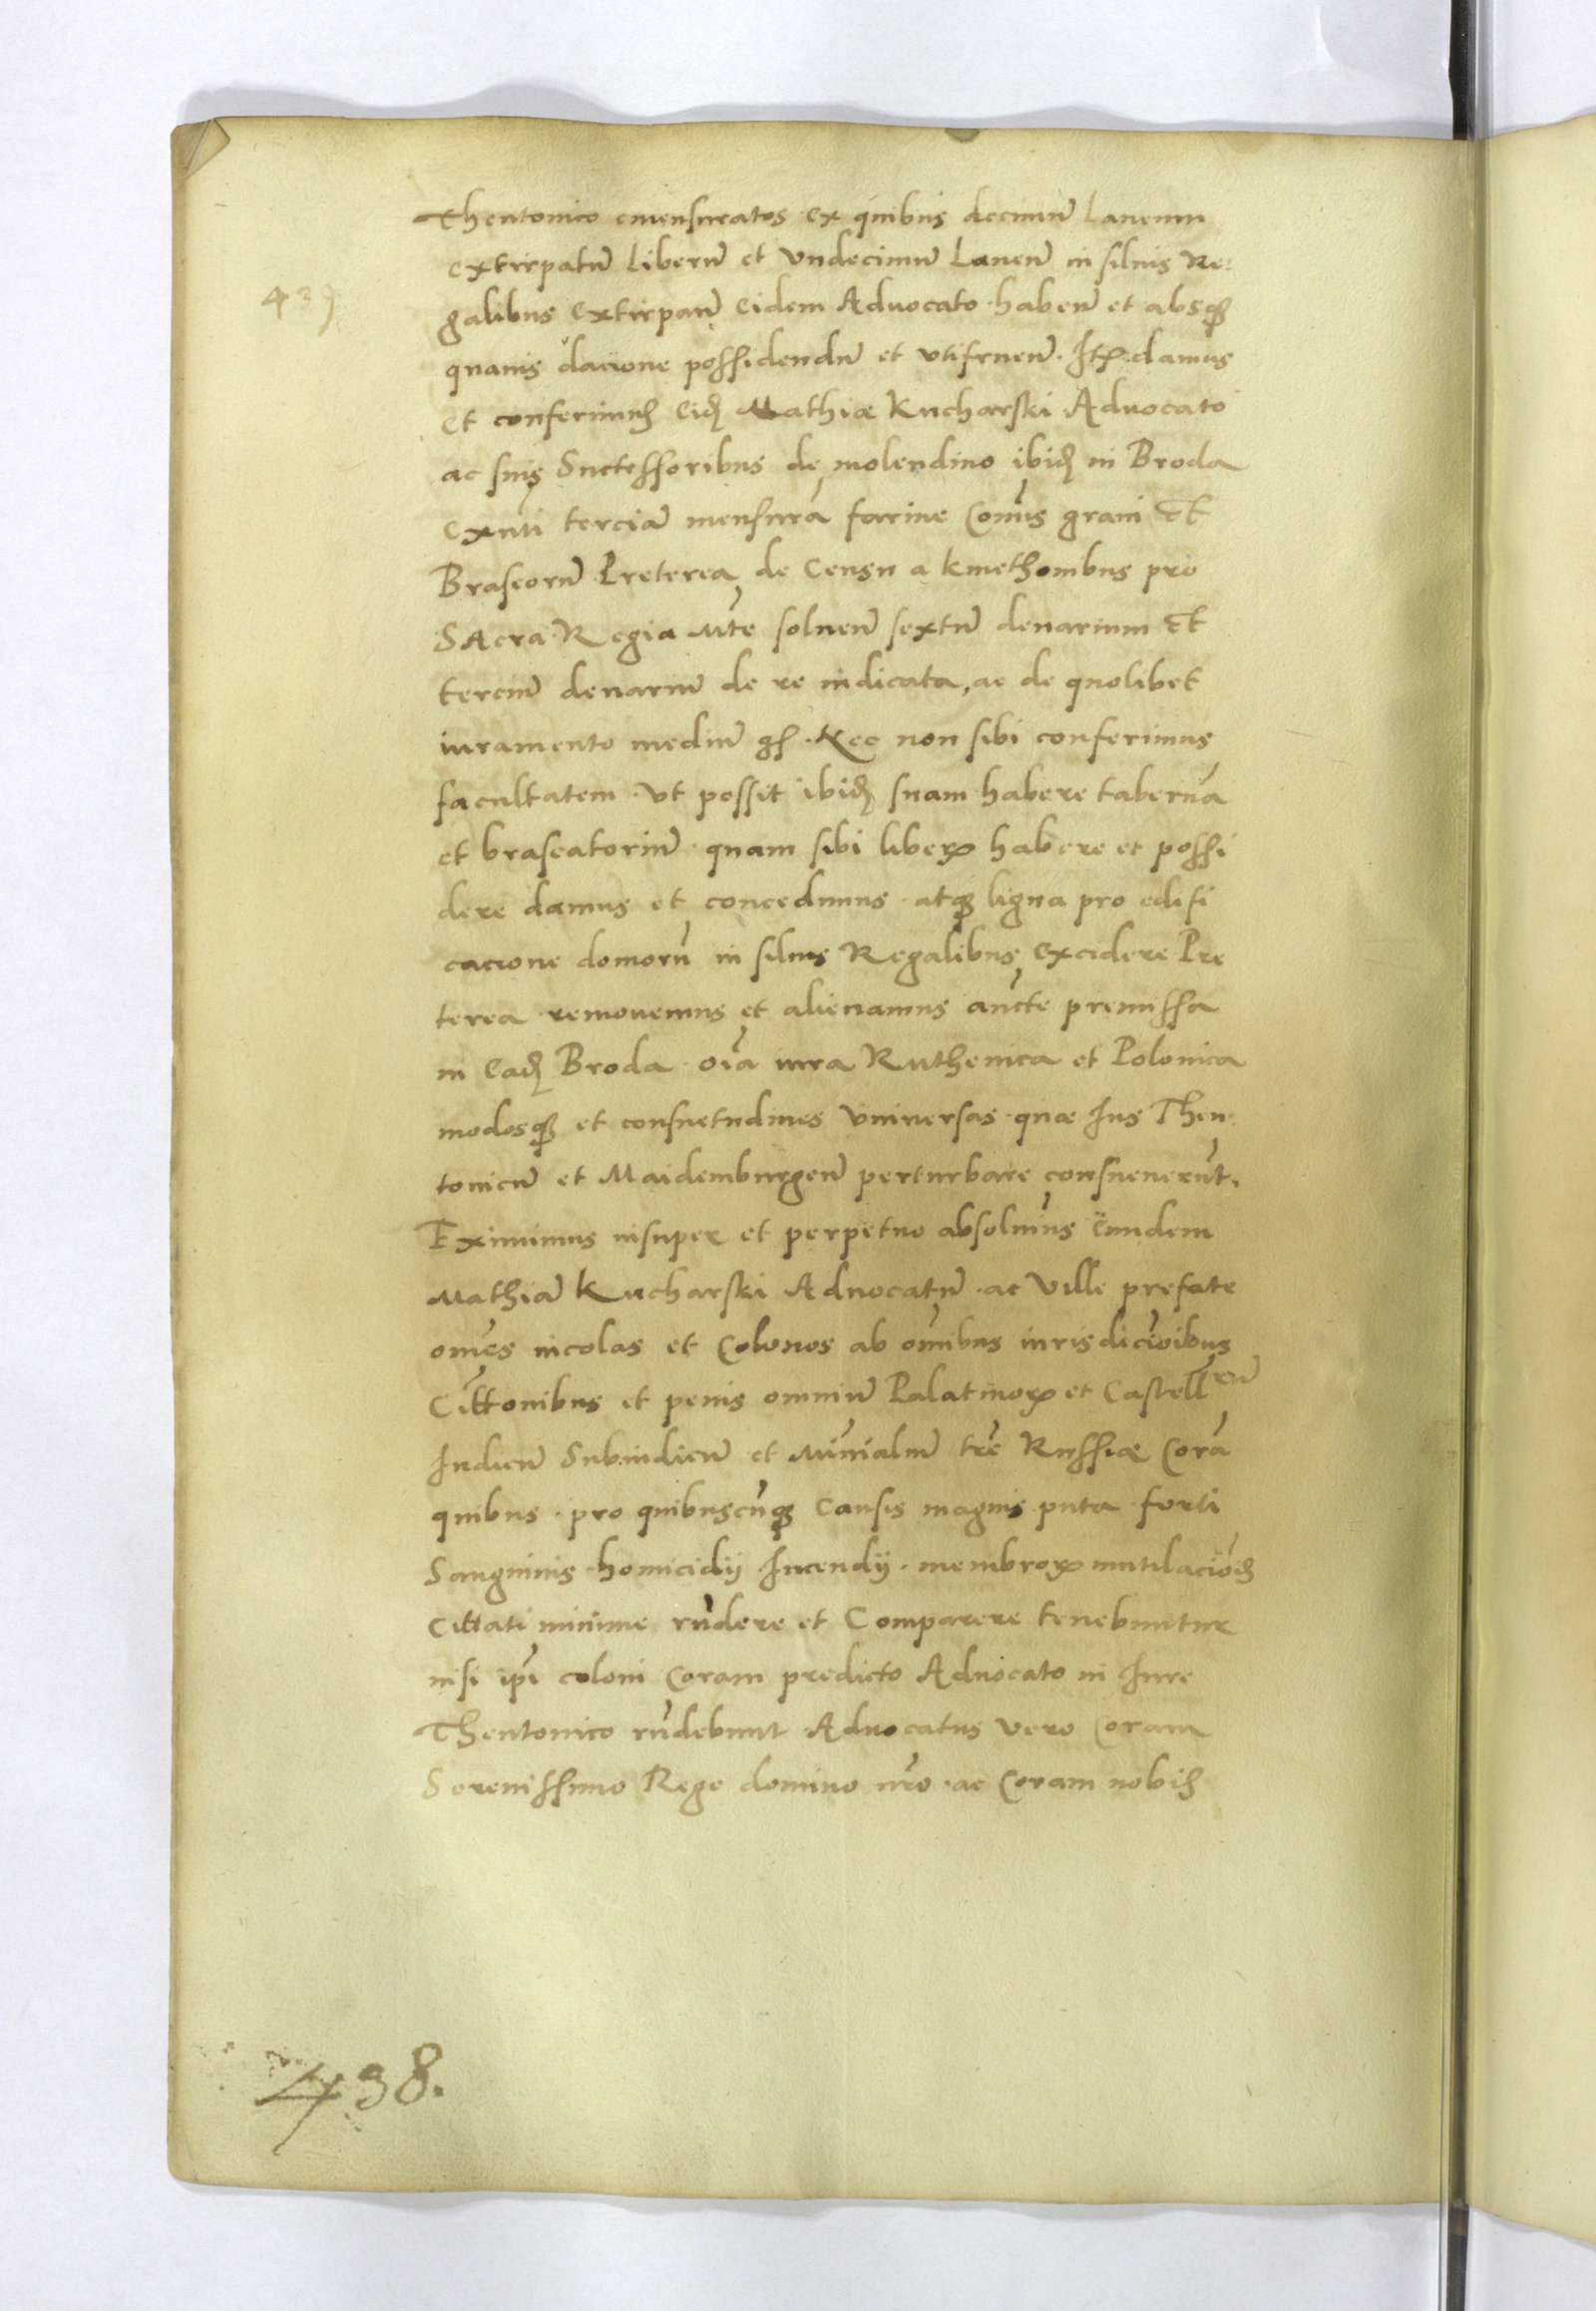 Theutonico emensuratos ex quibus decimũ laneum
extirpatũ liberũ et vndecimũ laneũ in siluis Re:
439
galibus extirpan̄ eidem Aduocato haben̄ et absq3
quauis dacione possidendũ et vtifruen̄. Itẽ damus
et conferimus eid Mathiæ Kucharski Aduocato
ac suis Successoribus de molendino ibid in Broda
exñti terciã mensurã farine com̃is grani Et
Braseorũ Preterea de Censu a kmethonibus pro
SAcra Regia Mt̃e soluen̄ sextũ denarium Et
terciũ denariũ de re iudicata, ac de quolibet
iuramento mediũ gs. Nec non sibi conferimus
facultatem vt possit ibid suam habere tabernã
et braseatoriũ quam sibi libere habere et possi
dere damus et concedimus atq3 ligna pro edifi
cacione domorũ in siluis Regalibus excidere Pre
terea remouemus et alienamus auc̃te premissa
in Ead Broda oĩa iura Ruthenica et Polonica
modosq3 et consuetudines vniuersas quæ Ius Theu
tonicũ et Maidemburgen̄ perturbare consueuerũt.
Eximimus insuper et perpetuo absoluim̃us eundem
Mathiã Kucharski Aduocatũ ac Ville prefate
om̃es incolas et Colonos ab om̃ibus iurisdiciõibus
Cittonibus et penis omniũ Palatinorꝝ et Castell rũ
Iudicũ Subiudicũ et Mĩnialiũ tr̃e Russiæ Corã
quibus pro quibuscũq3 Causis magnis puta furti
Sanguinis homicidij Incendij membrorꝝ mutilaciõis
Cittati minime rñdere et Comparere tenebuntur
nisi ip̃i coloni Coram predicto Aduocato in Iure
Theutonico rñdebunt Aduocatus vero Coram
Serenissimo Rege domino nr̃o ac Coram nobis
438.